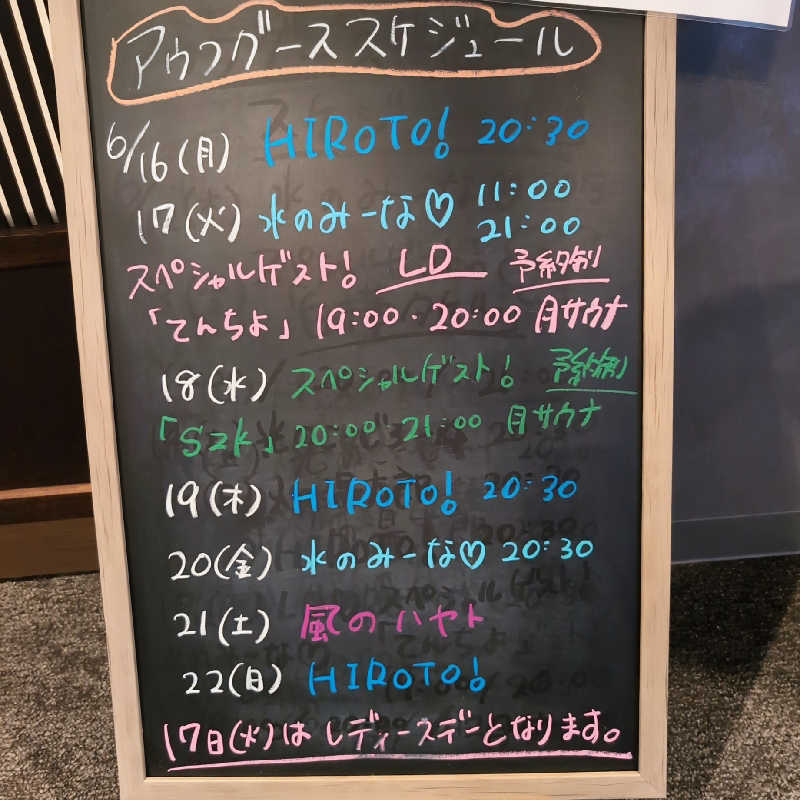 アウフグーススケジュール
6/16(月) HIROTO! 20:30
17(火) 水のみーな♡ 11:00
21:00
スペシャルゲスト! LD 予約制
「てんちよ」 19:00・20:00 月サウナ
18(水) スペシャルゲスト! 予約制
「Szk」 20:00・21:00 月サウナ
19(木) HIROTO! 20:30
20(金) 水のみーな♡ 20:30
21(土) 風のハヤト
22(日) HIROTO!
17日(火)は レディースデーとなります。